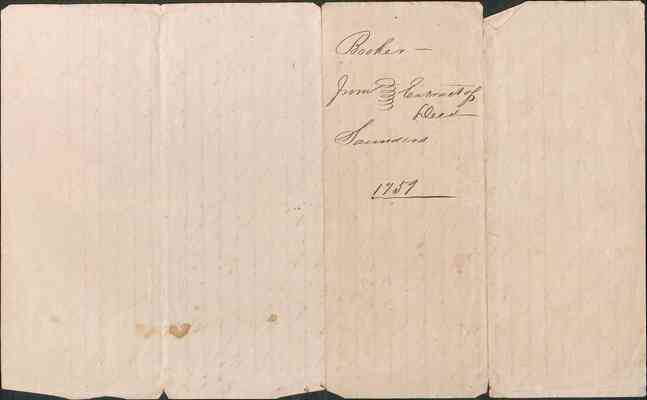 Booker —
from Extract of
Deed —
Saunders
1759